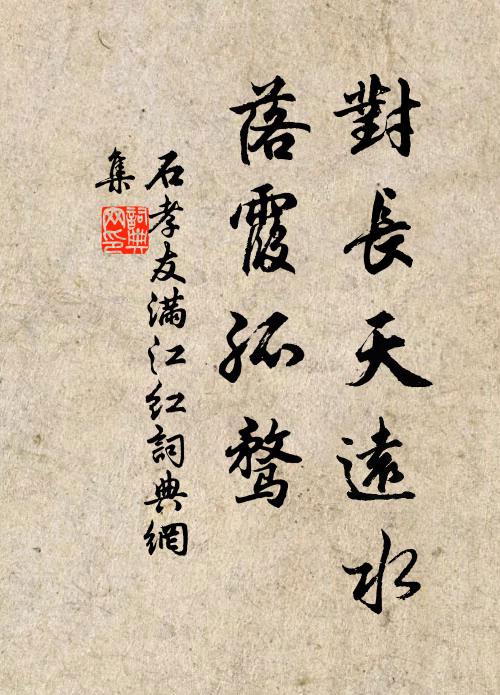 對長天遠水
落霞孤鶩
石孝友滿江紅詞典網
集
詞典网印